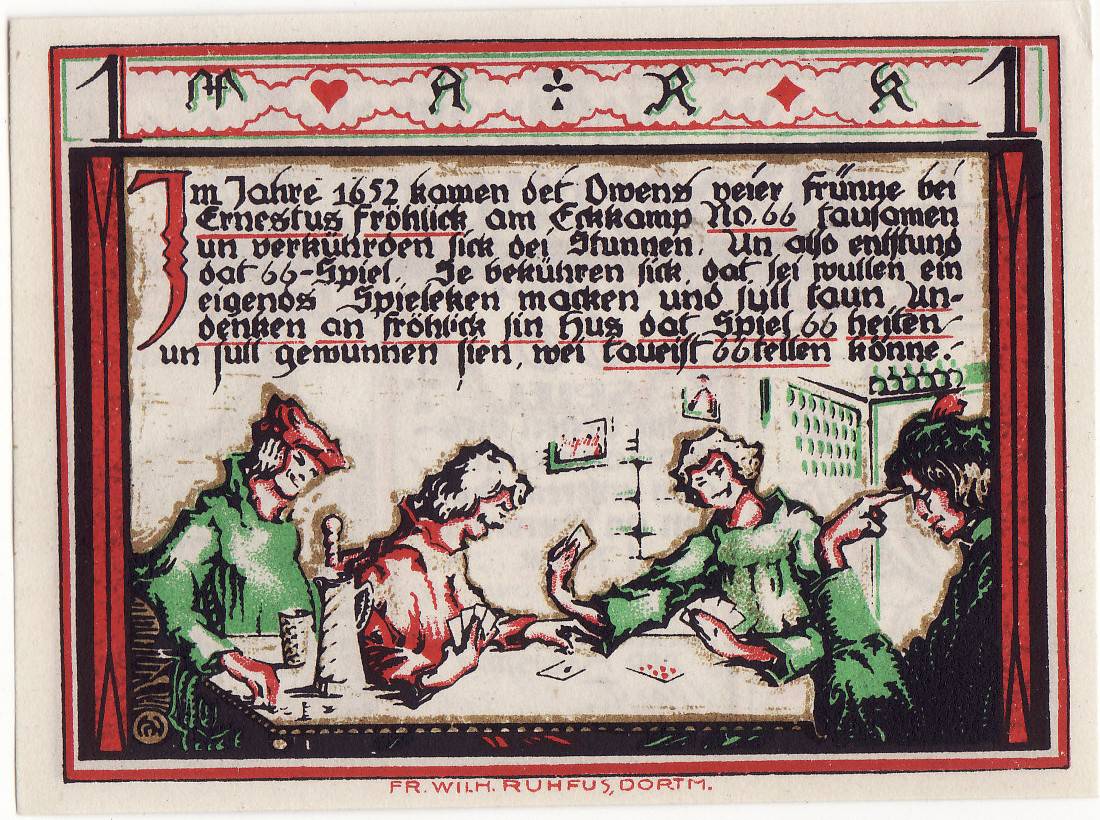 1 M A R K 1
Im Jahre 1652 kamen det Owens veier Frünne bei
Ernestus Fröhlick am Eckkamp No. 66 tausamen
un verkührden sick dei Stunnen. Un also entstund
dat 66-Spiel. Se bekühren sick dat sei wullen ein
eigends Spieleken macken und sull taun An-
denken an Fröhlick sin Hus dat Spiel 66 heiten
un sull gewunnen sien, wei taueist 66 tellen könne.
FR. WILH. RUHFUS, DORTM.